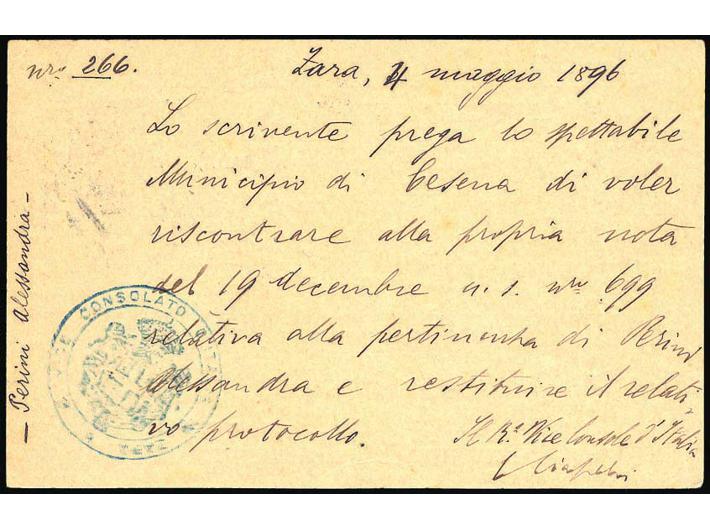 nro 266.
Zara, 4 maggio 1896
Lo scrivente prega lo spettabile
Municipio di Cesena di voler
riscontrare alla propria nota
del 19 decembre a. s. nro 699
relativa alla pertinenza di Perini
Alessandra e restituire il relati-
vo protocollo.
Il Ro. Vice Console d'Italia
— Perini Alessandra —
CONSOLATO